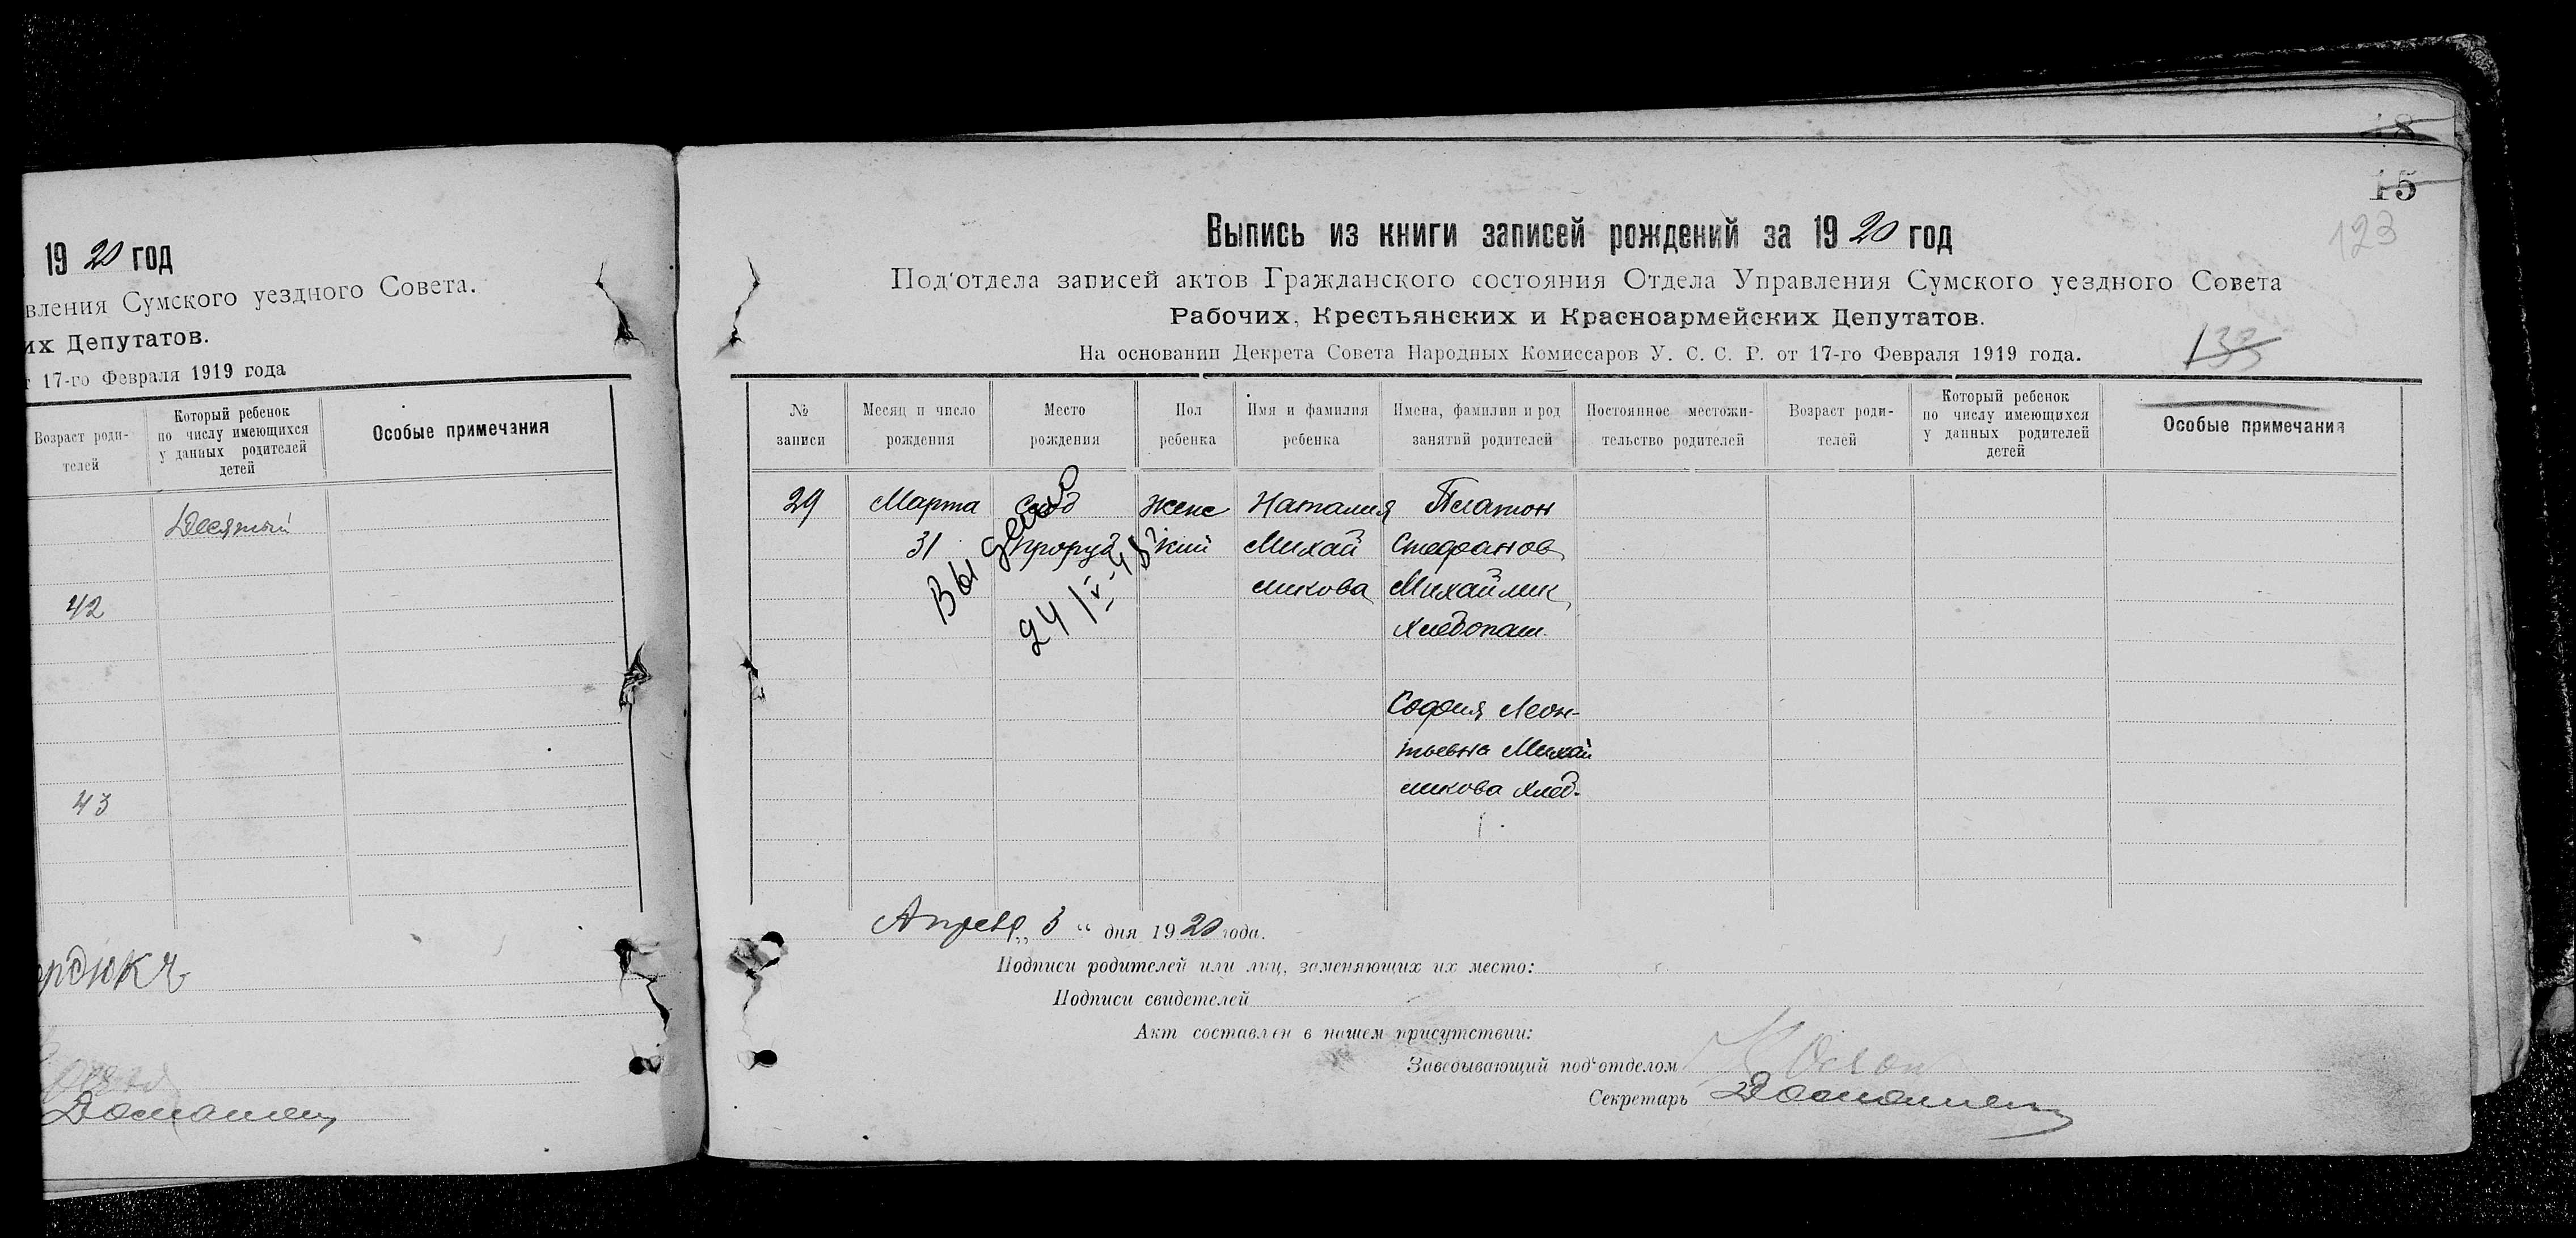 1920 год
вления Сумского уездного Совета.
их Депутатов.
т 17-го Февраля 1919 года
Возраст роди-
телей
Который ребенок
по числу имеющихся
у данных родителей
детей
Особые примечания
Десятый
42
43
Домашен
48
15
123
133
Выпись из книги записей рождений за 1920 год
Под'отдела записей актов Гражданского состояния Отдела Управления Сумского уездного Совета
Рабочих, Крестьянских и Красноармейских Депутатов.
На основании Декрета Совета Народных Комиссаров У. С. С. Р. от 17-го Февраля 1919 года.
№
записи
Месяц и число
рождения
Место
рождения
Пол
ребенка
Имя и фамилия
ребенка
Имена, фамилии и род
занятий родителей
Постоянное местожи-
тельство родителей
Возраст роди-
телей
Который ребенок
по числу имеющихся
у данных родителей
детей
Особые примечания
29
Марта
31
Проруб
Женс
кий
Наталия
Михай
ликова
Платон
Стефанов
Михайлик
Хлебопаш.
София Леон-
тьевна Михай
ликова Хлеб.
24/IV-48
Апреля „3“ дня 1920 года.
Подписи родителей или лиц, заменяющих их место:
Подписи свидетелей
Акт составлен в нашем присутствии:
Заведывающий под'отделом
Секретарь Домашен